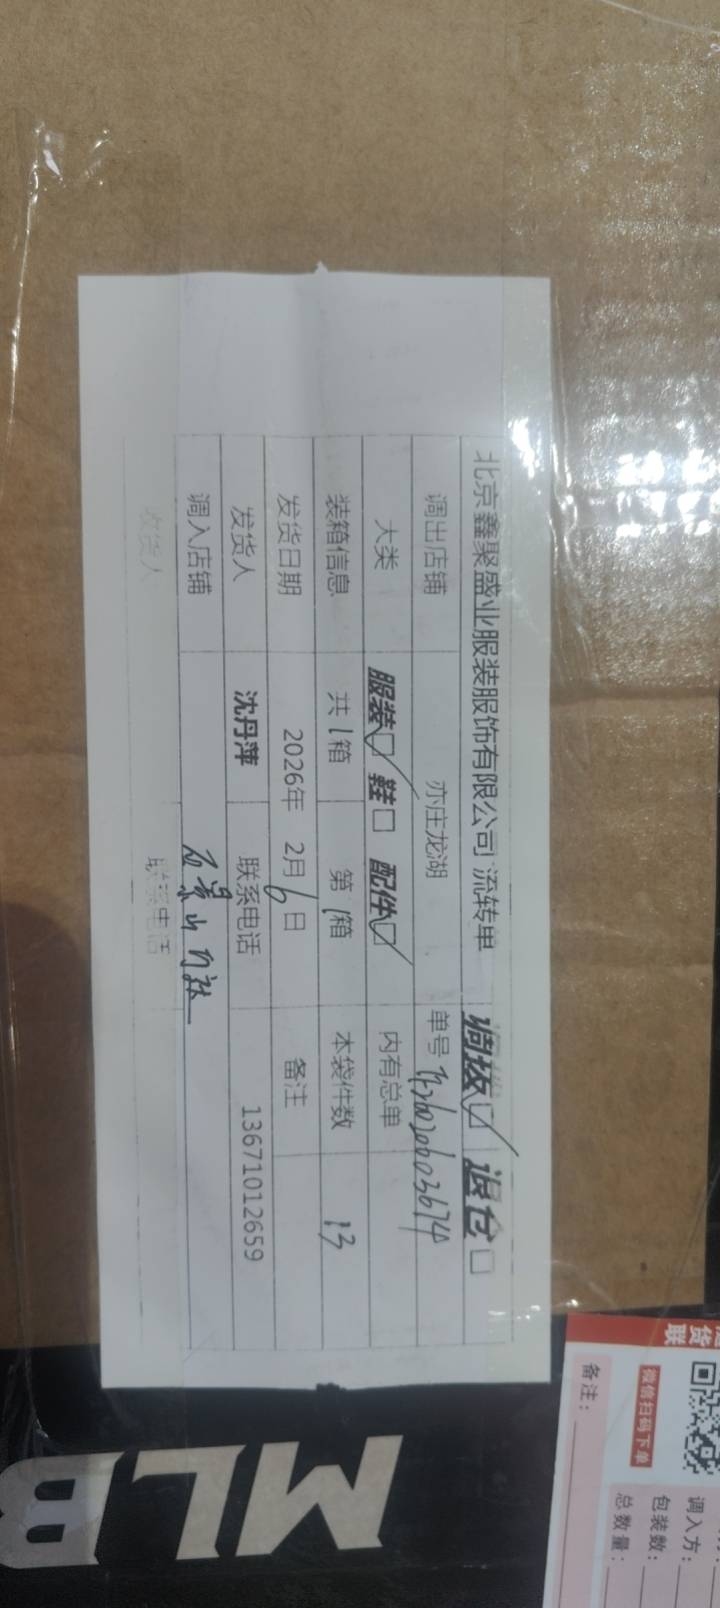 北京鑫聚盛业服装服饰有限公司 流转单 调拨☑ 退仓□
调出店铺 亦庄龙湖 单号
大类 服装☑ 鞋□ 配件☑ 内有总单
装箱信息 共1箱 第1箱 本袋件数 13
发货日期 2026年 2月6日 备注
发货人 沈丹萍 联系电话 13671012659
调入店铺 石景山
收货人 联系电话
MLB
货联
微信扫码下单
备注：
调入方：
包装数：
总数量：